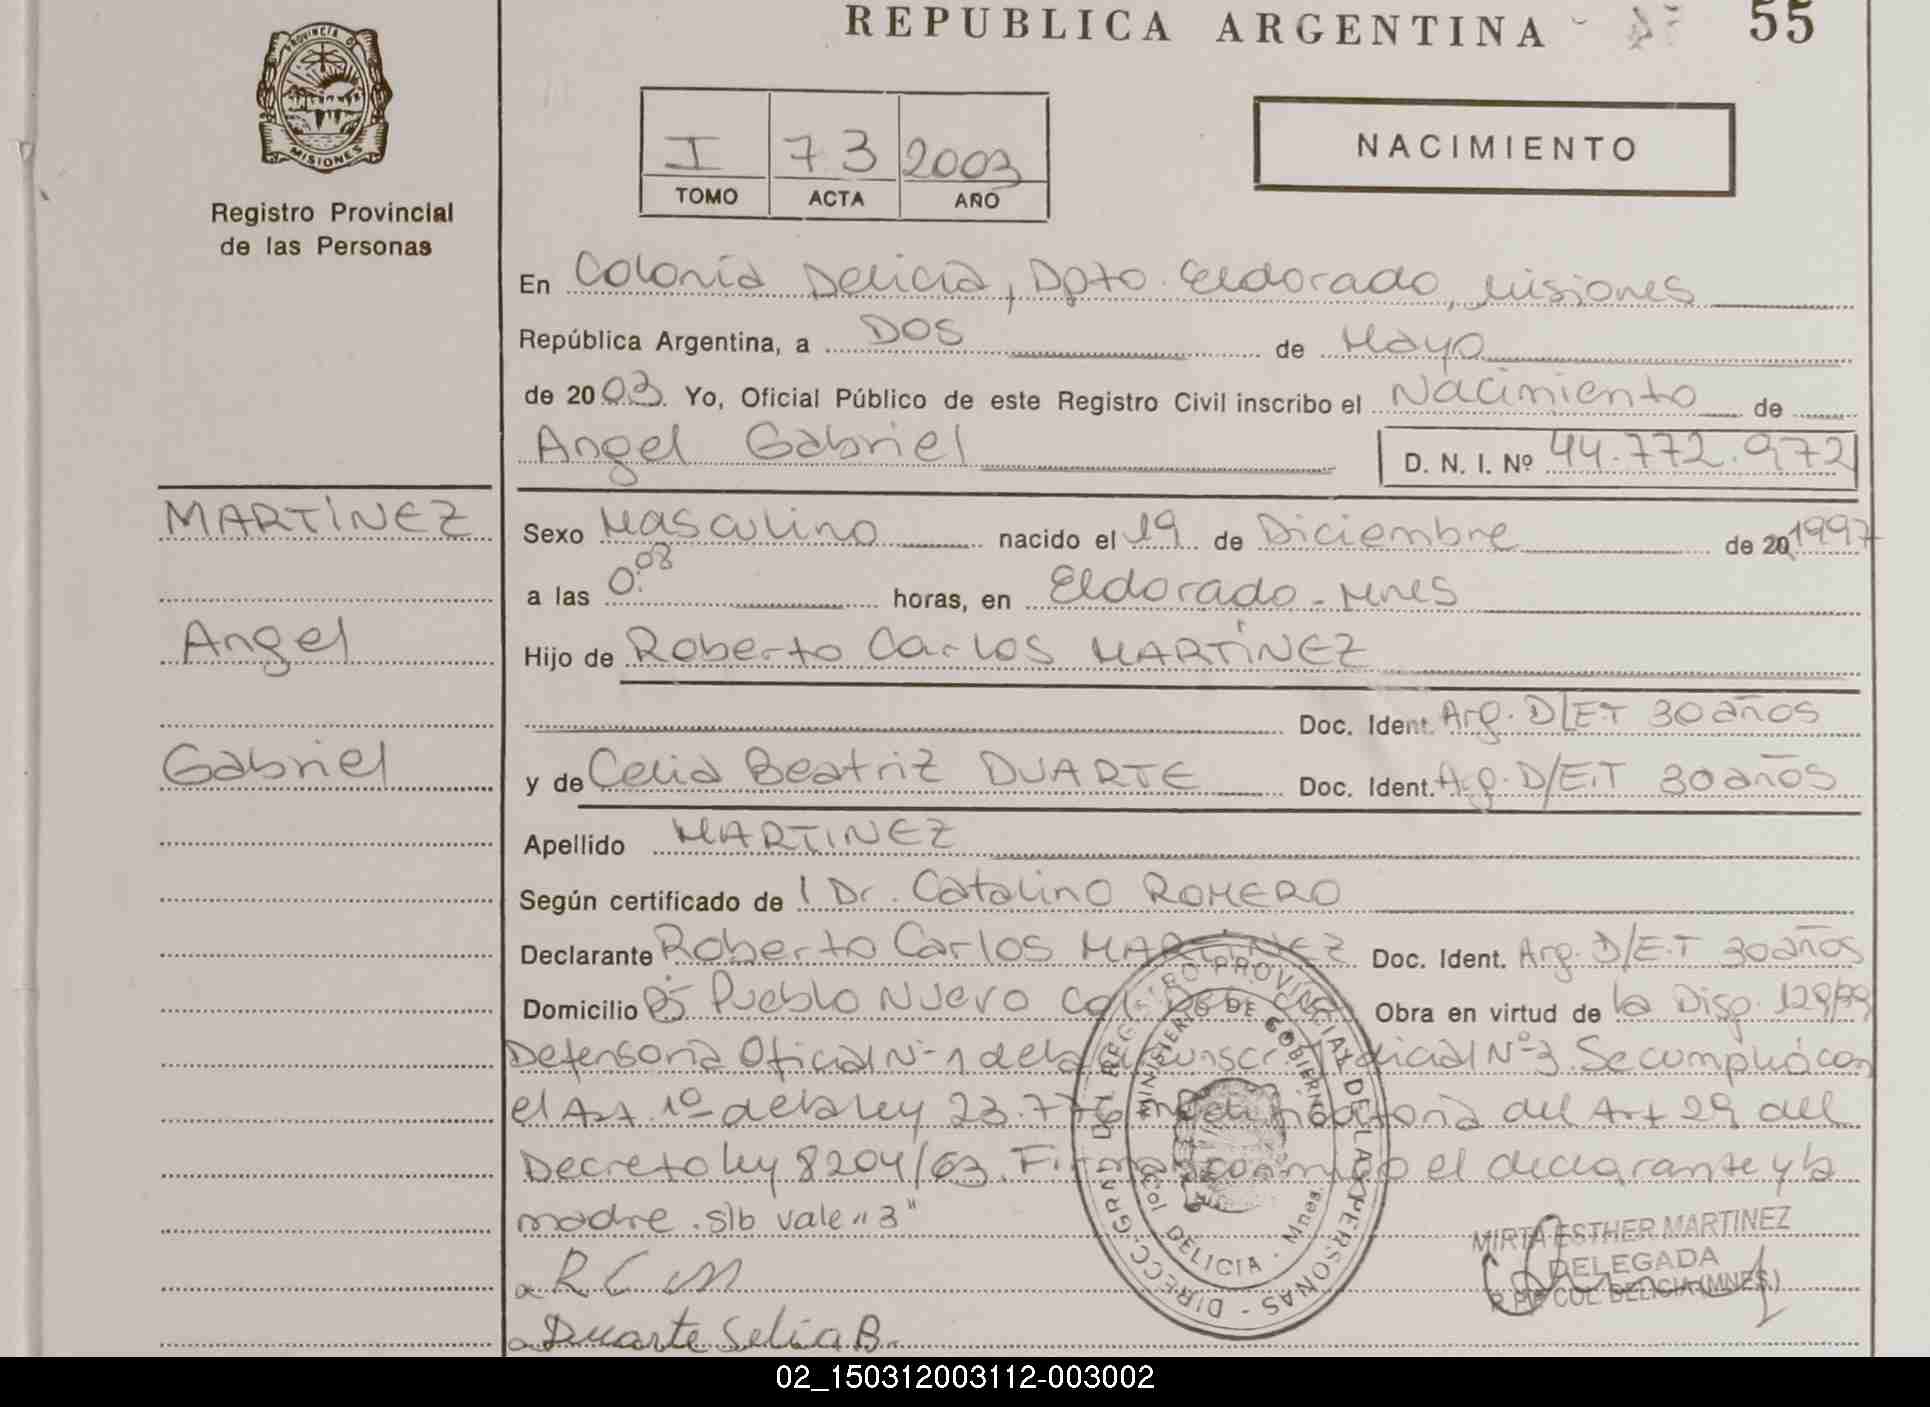 REPUBLICA ARGENTINA
55
PROVINCIA D
MISIONES
Registro Provincial
de las Personas
I 73 2003
TOMO ACTA AÑO
NACIMIENTO
En Colonia Delicia, Dpto. Eldorado, Misiones
República Argentina, a DOS de Mayo
de 2003 Yo, Oficial Público de este Registro Civil inscribo el Nacimiento de
Angel Gabriel D. N. I. Nº 44.772.972
MARTÍNEZ
Angel
Gabriel
Sexo Masculino nacido el 19 de Diciembre de 20 1997
a las 0:08 horas, en Eldorado - Mnes
Hijo de Roberto Carlos MARTÍNEZ
Doc. Ident. Arg. D/E.T 30 años
y de Celia Beatriz DUARTE Doc. Ident. Arg. D/E.T 30 años
Apellido MARTINEZ
Según certificado de l Dr. Catalino ROMERO
Declarante Roberto Carlos MARTÍNEZ Doc. Ident. Arg. D/E.T 30 años
Domicilio Bº Pueblo Nuevo Col. Delicia Obra en virtud de la Disp. 129/99
Defensoria Oficial Nº 1 de la Circunscr. Judicial Nº 3. Se cumplió con
el Art. 1º de la ley 23.776 modificatoria del Art 29 del
Decreto ley 8204/63. Firman conmigo el declarante y la
madre. s/b vale "3"
a R C M
a Duarte Selia B.
DIRECC. GRAL. DEL REGISTRO PROVINCIAL DE LAS PERSONAS
MINISTERIO DE GOBIERNO
Col DELICIA - Mnes.
MIRTA ESTHER MARTINEZ
DELEGADA
R.P.P. COL. DELICIA (MNES.)
02_150312003112-003002